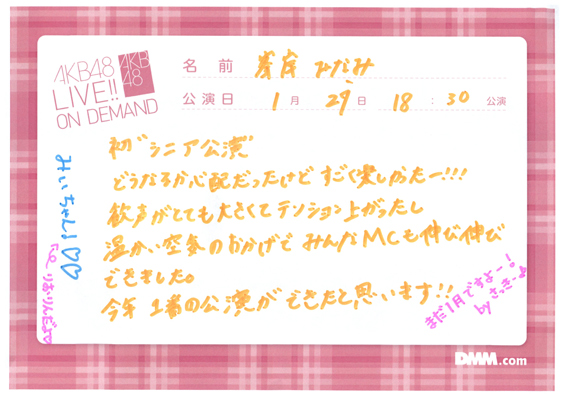 AKB48
LIVE!!
ON DEMAND
AKB
48
名前 峯岸みなみ
公演日 1月29日 18:30公演
初"シニア公演"
どうなるか心配だったけど すごく楽しかったー!!!
歓声がとても大きくてテンション上がったし
温かい空気のおかげで みんなMCも伸び伸び
できました。
今年 1番の公演ができたと思います!!
まだ1月ですよー!
by さっきー
みぃちゃん♡♡
りほりんだよ♡
DMM.com